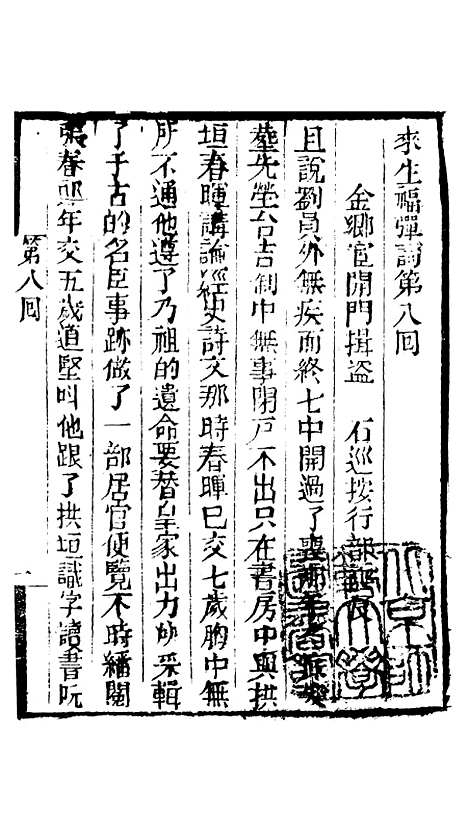 來生福彈詞第八回
金鄉宦開門揖盜　石巡按行部
且說劉員外無疾而終七中開過了喪
塋先坐台吉制中無事閉戶不出只在書房中與拱
垣春暉講論經史詩文那時春暉已交七歲胸中無
所不通他遵了乃祖的遺命要替皇家出力帥采輯
了千古的名臣事跡做了一部居官便覽不時繙閱
弟春郎年交五歲道堅叫他跟了拱垣識字讀書阮
第八回
一